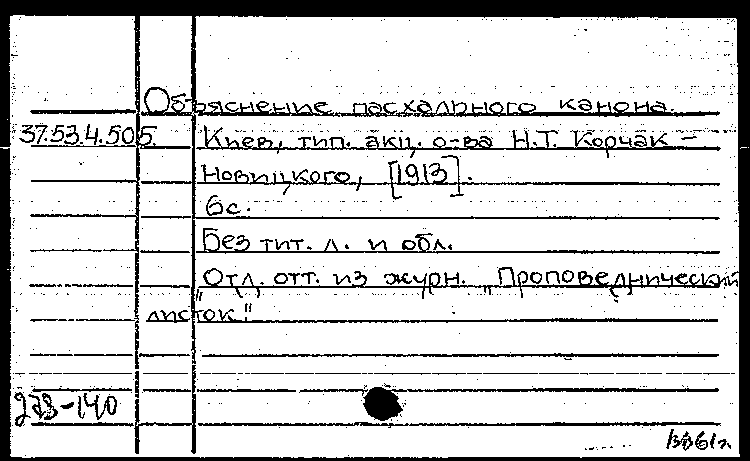 Объяснение пасхального канона.
37.53.4.505. Киев, тип. акц. о-ва Н.Т. Корчак –
Новицкого, [1913].
6с.
Без тит. л. и обл.
Отд. отт. из журн. „Проповеднический
листок."
273-140